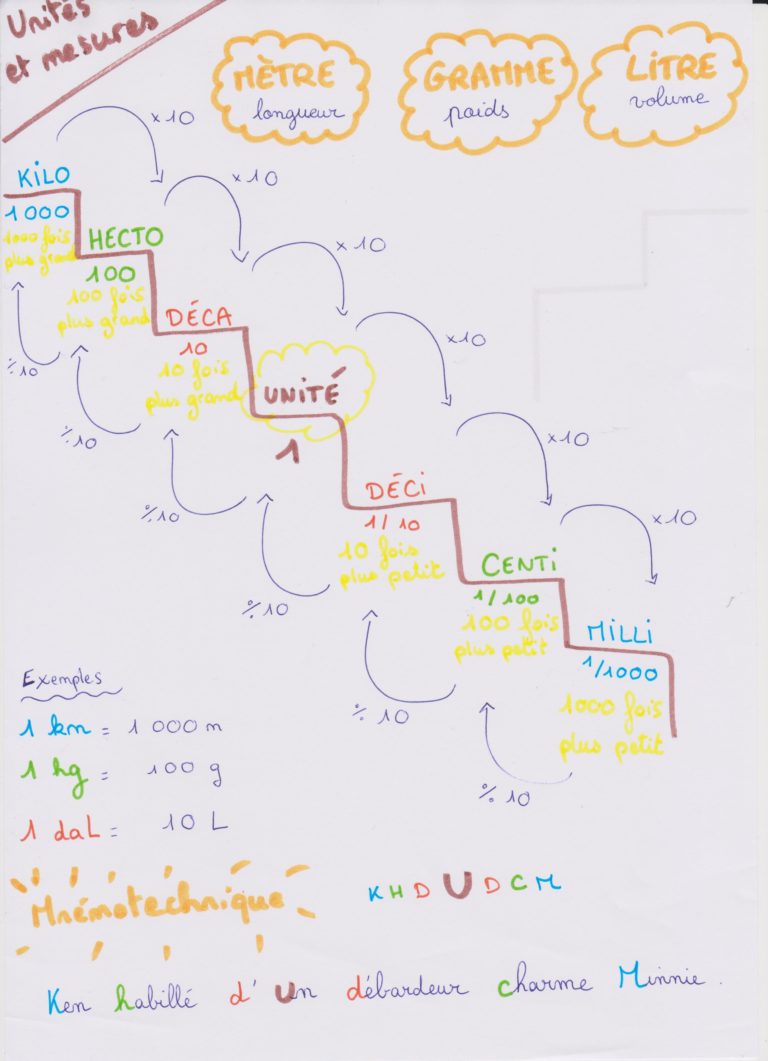 Unités
et mesures
MÈTRE
longueur
GRAMME
poids
LITRE
volume
x10
KILO
1000
1000 fois
plus grand
x10
HECTO
100
100 fois
plus grand
x10
DÉCA
10
10 fois
plus grand
x10
UNITÉ
1
x10
DÉCI
1/10
10 fois
plus petit
x10
CENTI
1/100
100 fois
plus petit
MILLI
1/1000
1000 fois
plus petit
÷10
÷10
÷10
÷10
÷10
÷10
Exemples
1 km = 1 000 m
1 hg = 100 g
1 daL = 10 L
Mnémotechnique
K H D U D C M
Ken habillé d'un débardeur charme Minnie.